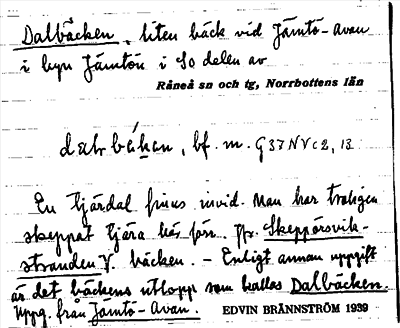 Dalbäcken, liten bäck vid Jämtö-Avan
i byn Jämtön i SO delen av
Råneå sn och tg, Norrbottens län
bf. m. G37NVc2, 13
En tjärdal finns invid. Man har troligen
skeppat tjära här förr. På Skeppörsvik-
stranden V. bäcken. – Enligt annan uppgift
är det bäckens utlopp som kallas Dalbäcken.
Uppg. från Jämtö-Avan. EDVIN BRÄNNSTRÖM 1939